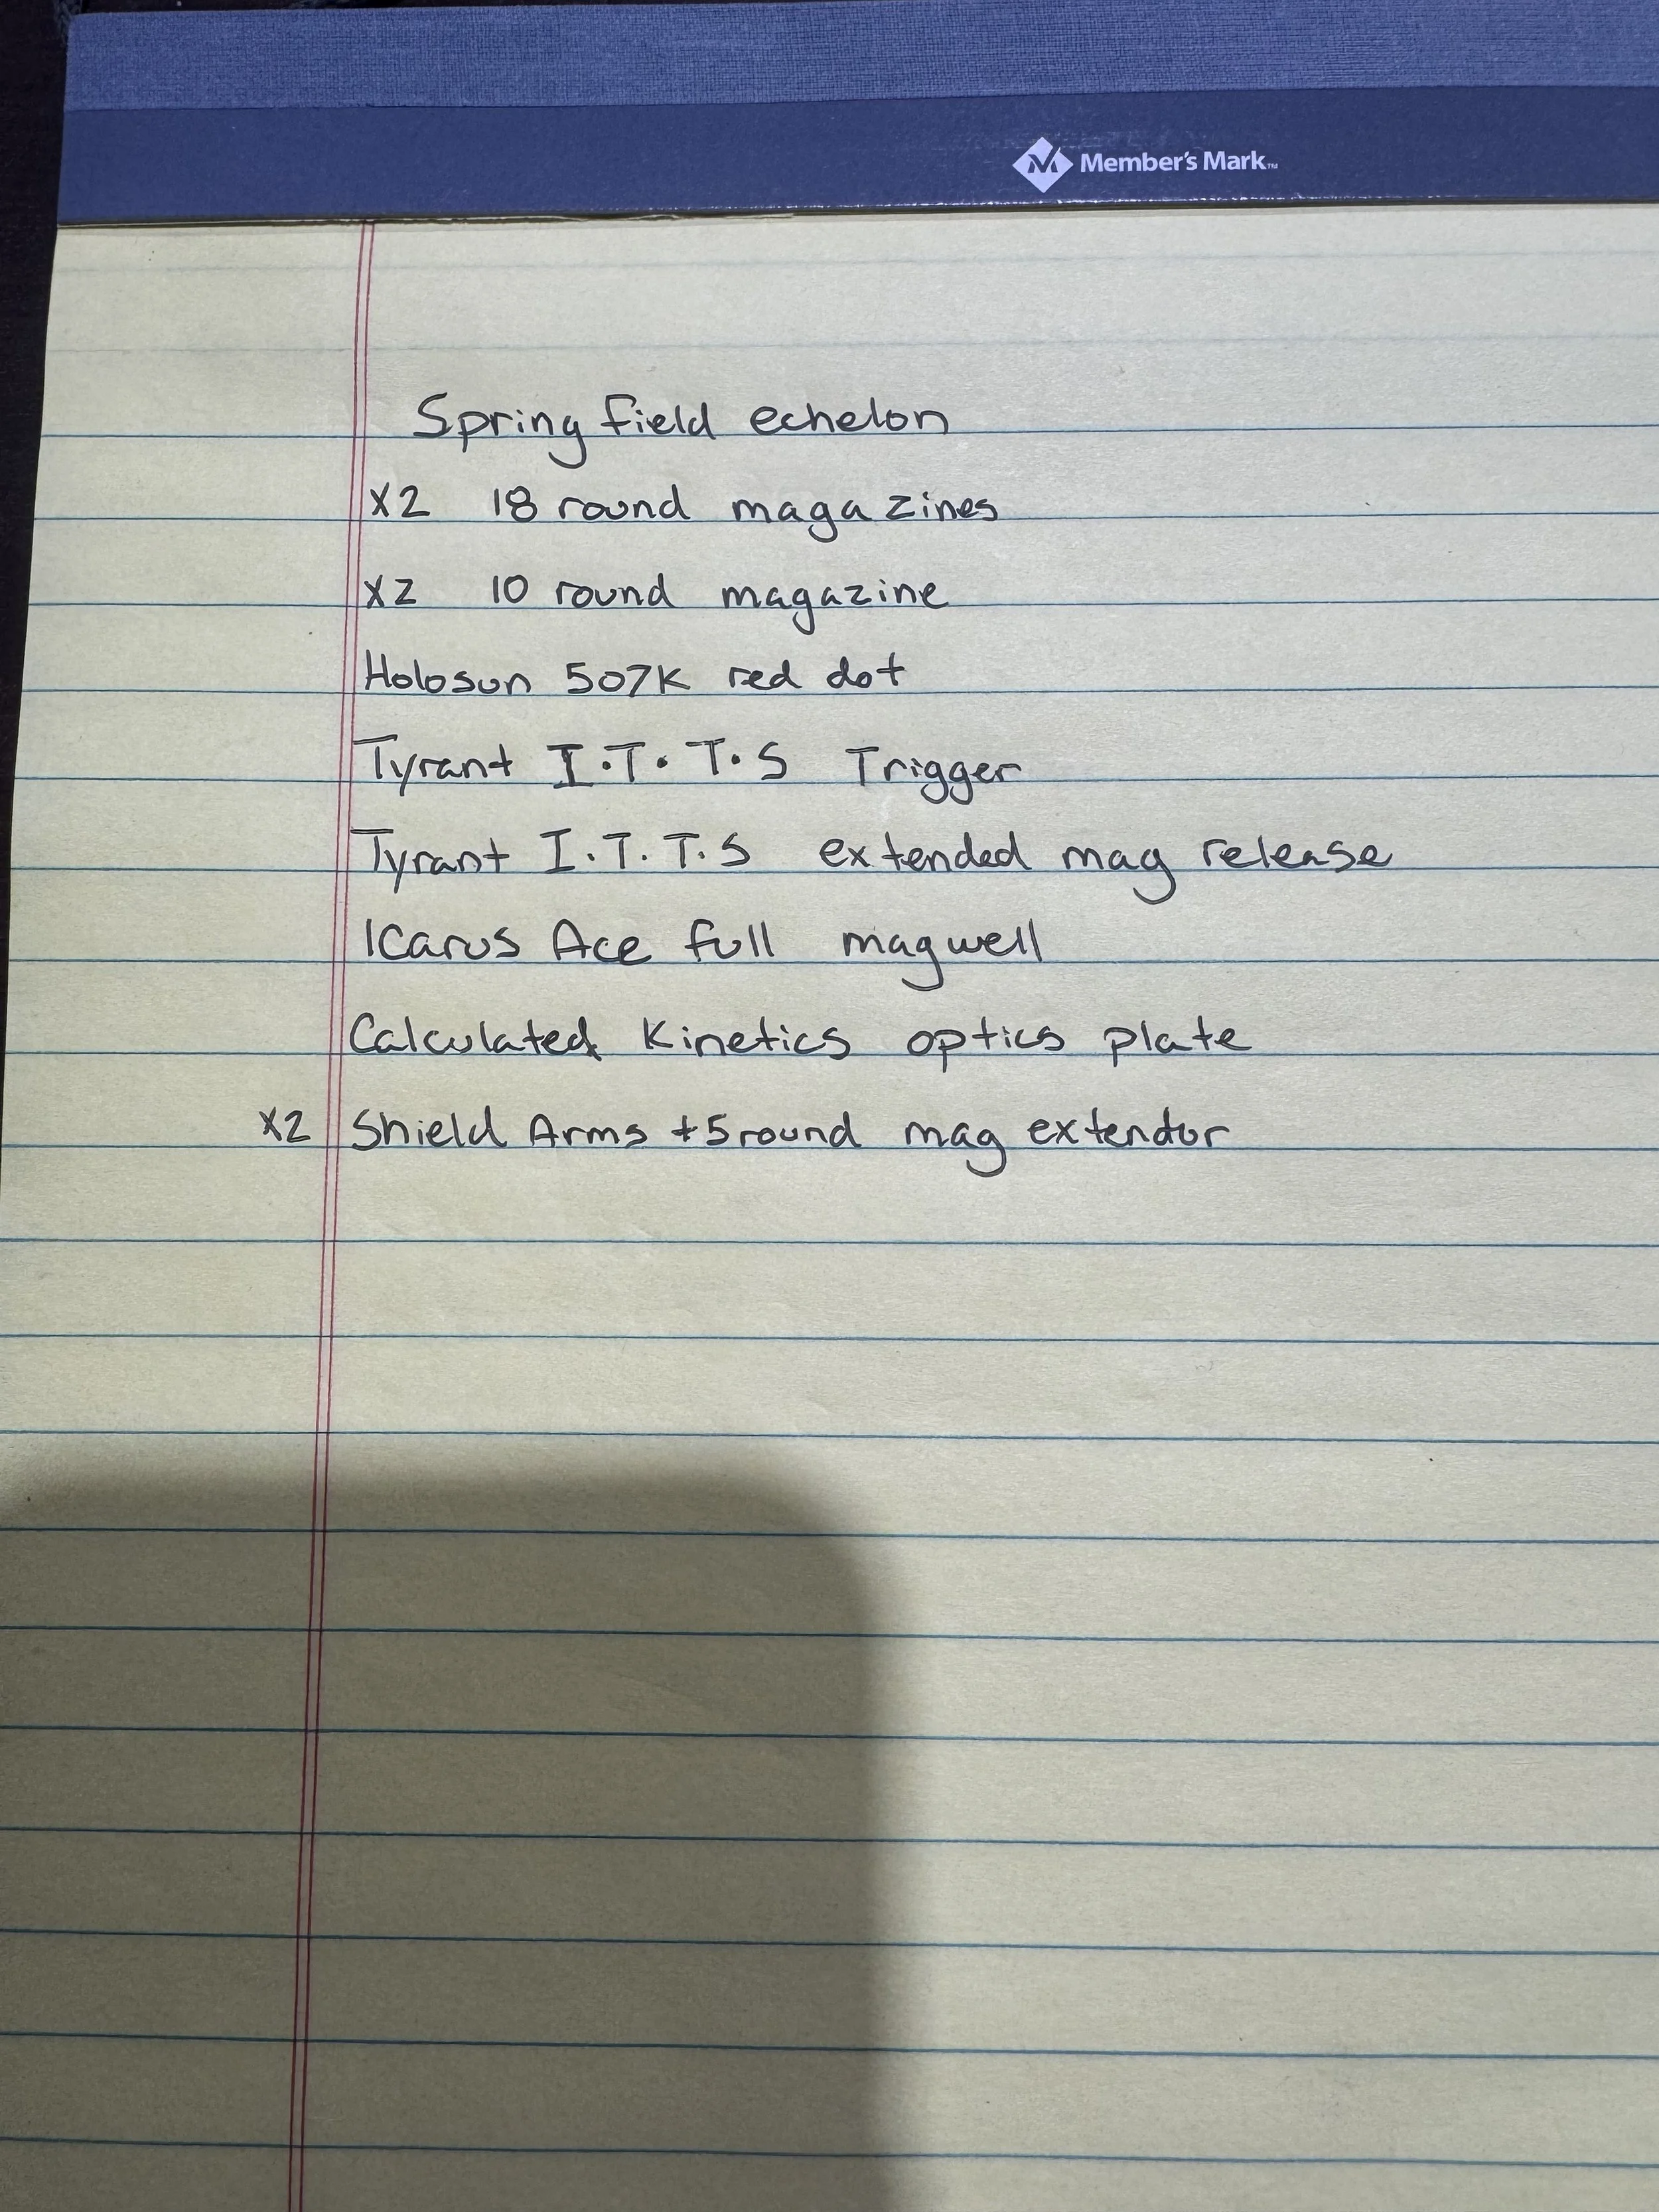 Member's Mark™
Springfield echelon
x2 18 round magazines
x2 10 round magazine
Holosun 507K red dot
Tyrant I.T.T.S Trigger
Tyrant I.T.T.S extended mag release
Icarus Ace full magwell
Calculated Kinetics optics plate
x2 Shield Arms +5 round mag extendor